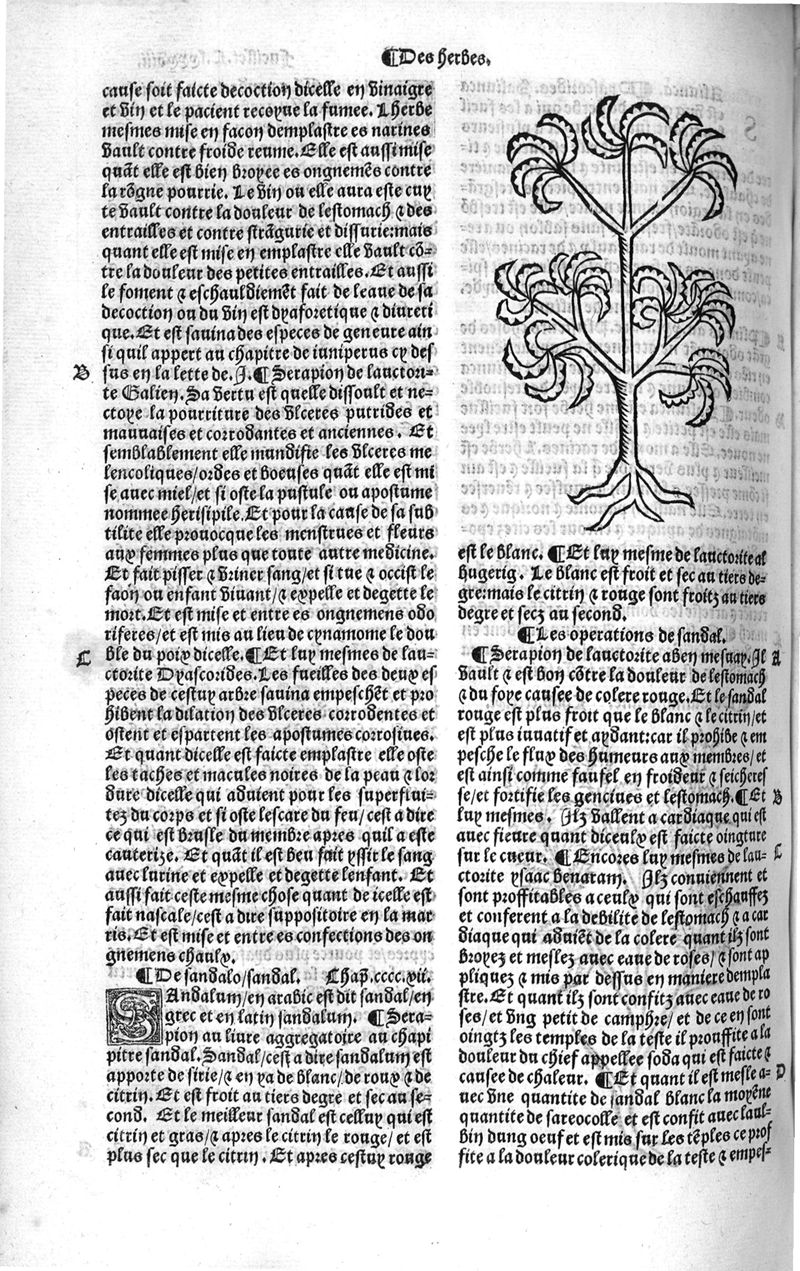 ¶Des herbes.
cause soit faicte decoction dicelle en vinaigre
et vin et le pacient recoyue la fumee. Lherbe
mesmes mise en facon demplastre es narines
vault contre froide reume. Elle est aussi mise
quāt elle est bien broyee es ongnemēs contre
la rōgne pourrie. Le vin ou elle aura este cuy
te vault contre la douleur de lestomach ⁊ des
entrailles et contre strāgurie et dissurie: mais
quant elle est mise en emplastre elle vault cō-
tre la douleur des petites entrailles. Et aussi
le foment ⁊ eschauldiemēt fait de leaue de sa
decoction ou du vin est dyaforetique ⁊ diureti
que. Et est sauina des especes de geneure ain
si quil appert au chapitre de iuniperus cy des
B sus en la lette de. J. ¶Serapion de lauctori-
te Galien. Sa vertu est quelle dissoult et ne-
ctoye la pourriture des vlceres putrides et
mauuaises et corrodantes et anciennes. Et
semblablement elle mundifie les vlceres me
lencoliques/ordes et boeuses quāt elle est mi
se auec miel/et si oste la pustule ou apostume
nommee herisipile. Et pour la cause de sa sub
tilite elle prouocque les menstrues et fleurs
aux femmes plus que toute autre medicine.
Et fait pisser ⁊ vriner sang/et si tue ⁊ occist le
faon ou enfant viuant/⁊ expelle et degette le
mort. Et est mise et entre es ongnemens odo
riferes/et est mis au lieu de cynamome le dou
C ble du poix dicelle. ¶Et luy mesmes de lau-
ctorite Dyascorides. Les fueilles des deux es
peces de cestuy arbre sauina empeschēt et pro
hibent la dilation des vlceres corrodentes et
ostent et espartent les apostumes corrosiues.
Et quant dicelle est faicte emplastre elle oste
les taches et macules noires de la peau ⁊ lor
dure dicelle qui aduient pour les superflui-
tez du corps et si oste lescare du feu/cest a dire
ce qui est brusle du membre apres quil a este
cauterize. Et quāt il est beu fait yssir le sang
auec lurine et expelle et degette lenfant. Et
aussi fait ceste mesme chose quant de icelle est
fait nascale/cest a dire suppositoire en la mar
ris. Et est mise et entre es confections des on
gnemens chaulx.
¶De sandalo/sandal. Chap. cccc.xii.
SAndalum/en arabic est dit sandal/en
grec et en latin sandalum. ¶Sera-
pion au liure aggregatoire au chapi
pitre sandal. Sandal/cest a dire sandalum est
apporte de sirie/⁊ en ya de blanc/de roux ⁊ de
citrin. Et est froit au tiers degre et sec au se-
cond. Et le meilleur sandal est celluy qui est
citrin et gras/⁊ apres le citrin le rouge/et est
plus sec que le citrin. Et apres cestuy rouge
est le blanc. ¶Et luy mesme de lauctorite al
hugerig. Le blanc est froit et sec au tiers de-
gre: mais le citrin ⁊ rouge sont froitz au tiers
degre et secz au second.
¶Les operations de sandal.
¶Serapion de lauctorite aben mesuay. Il A
vault ⁊ est bon cōtre la douleur de lestomach
⁊ du foye causee de colere rouge. Et le sandal
rouge est plus froit que le blanc ⁊ le citrin/et
est plus iuuatif et aydant: car il prohibe ⁊ em
pesche le flux des humeurs aux membres/et
est ainsi comme faufel en froideur ⁊ seicheres
se/et fortifie les genciues et lestomach. ¶Et B
luy mesmes. Ilz vallent a cardiaque qui est
auec fieure quant diceulx est faicte oingture
sur le cueur. ¶Encores luy mesmes de lau- C
ctorite ysaac benaram. Ilz conuiennent et
sont proffitables a ceulx qui sont eschauffez
et conferent a la debilite de lestomach ⁊ a car
diaque qui aduiēt de la colere quant ilz sont
broyez et meslez auec eaue de roses/⁊ sont ap
pliquez ⁊ mis par dessus en maniere dempla
stre. Et quant ilz sont confitz auec eaue de ro
ses/et vng petit de camphre/et de ce en sont
oingtz les temples de la teste il prouffite a la
douleur du chief appellee soda qui est faicte ⁊
causee de chaleur. ¶Et quant il est mesle a- D
uec vne quantite de sandal blanc la moyēne
quantite de sarcocolle et est confit auec laul-
bin dung oeuf et est mis sur les tēples ce prof
fite a la douleur colerique de la teste ⁊ empes-